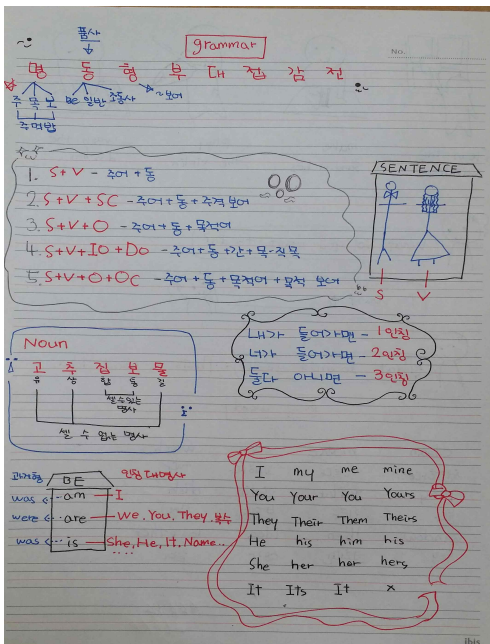 품사
grammar
No.
명 동 형 부 대 접 감 전
주 목 보 be 일반 조동사 ~보어
주먹밥
1. S+V - 주어+동
2. S+V+SC - 주어+동+주격보어
3. S+V+O - 주어+동+목적어
4. S+V+IO+DO - 주어+동+간+목·직목
5. S+V+O+OC - 주어+동+목적어+목적 보어
SENTENCE
S V
내가 들어가면 - 1인칭
너가 들어가면 - 2인칭
둘다 아니면 - 3인칭
Noun
고 추 집 보 물
유 상 합 통 질
셀수있는
명사
셀 수 없는 명사
과거형 BE 인칭대명사
was am I
were are We, You, They, 복수
was is She, He, It, Name..
I my me mine
You Your You Yours
They Their Them Theirs
He his him his
She her her hers
It Its It x
ibis